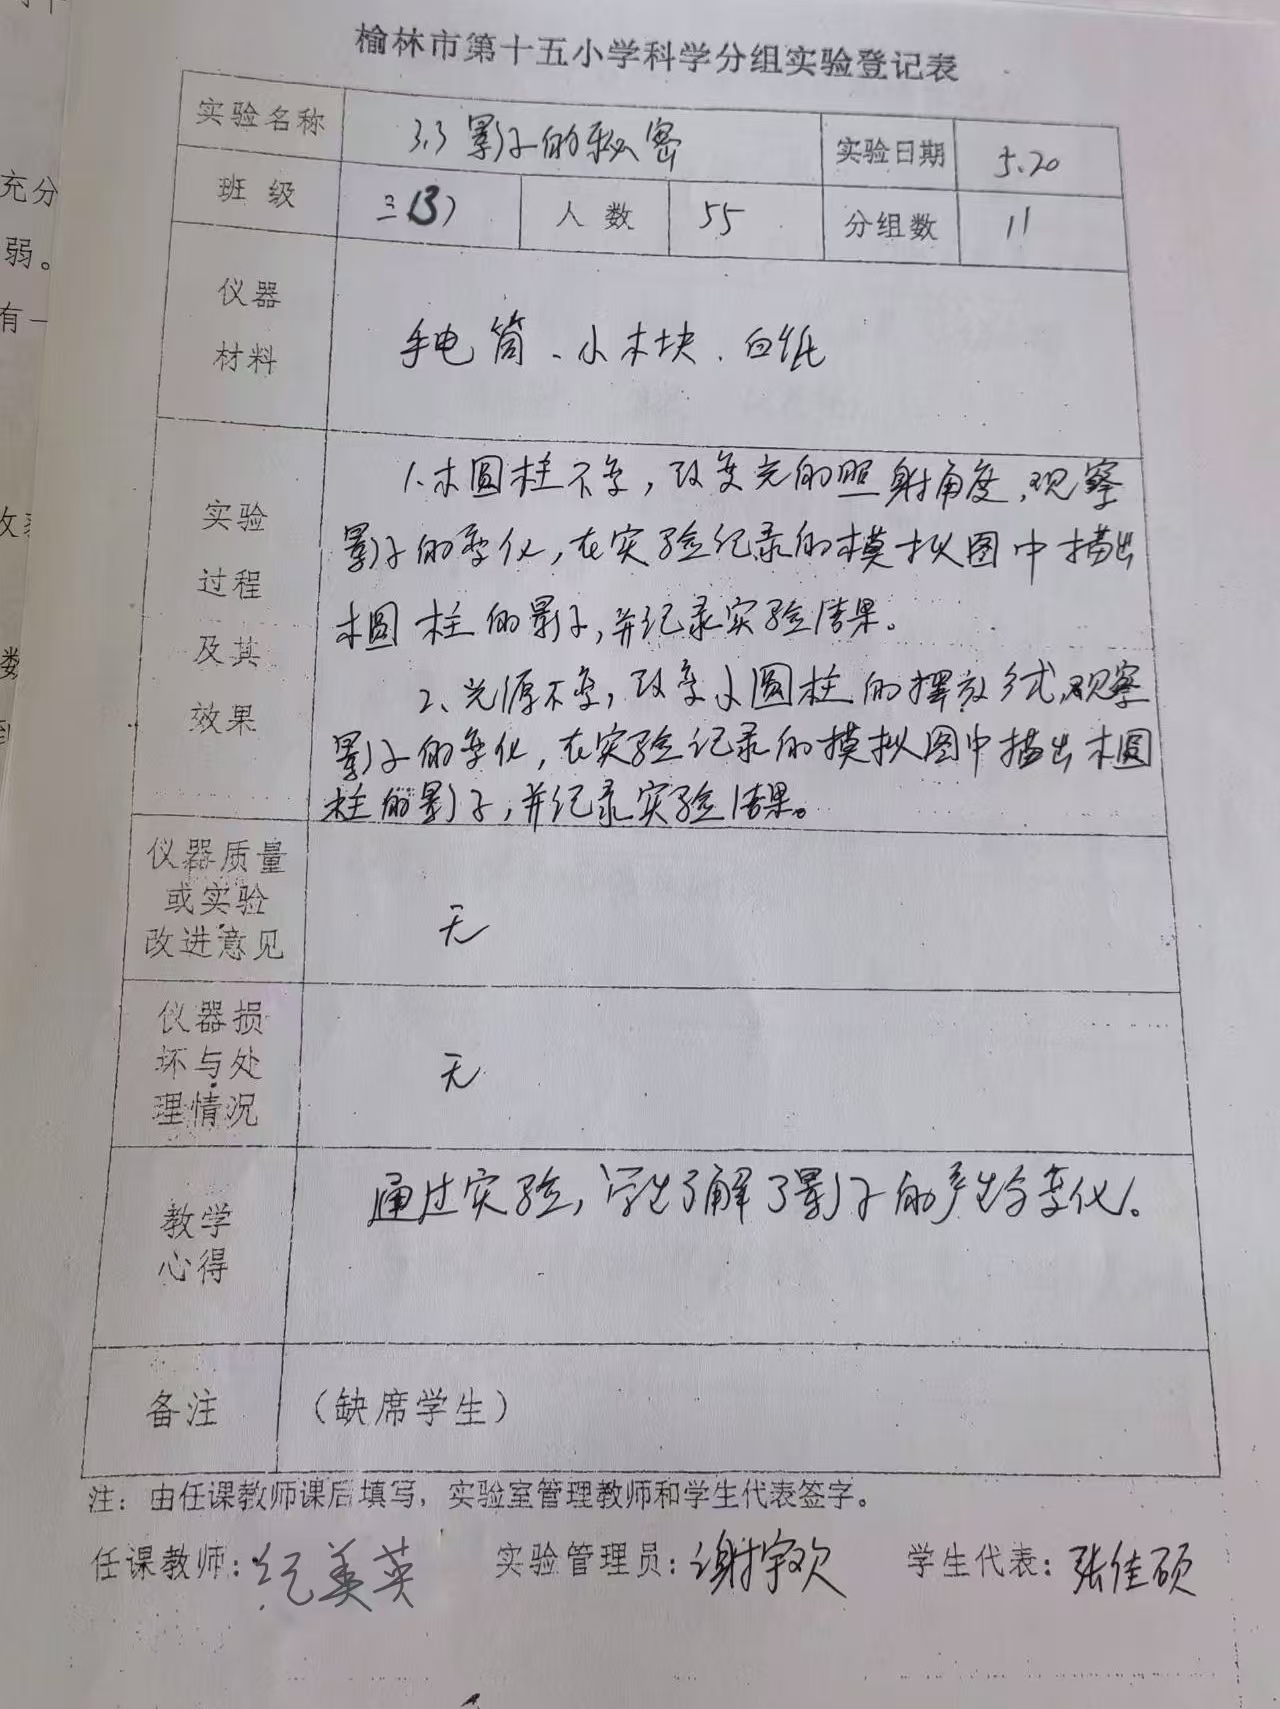 充分
弱。
有一
榆林市第十五小学科学分组实验登记表
实验名称 3.3 影子的秘密 实验日期 5.20
班级 三(3) 人数 55 分组数 11
仪器
材料
手电筒、小木块、白纸
实验
过程
及其
效果
1、木圆柱不变，改变光的照射角度，观察
影子的变化，在实验记录的模拟图中描出
木圆柱的影子，并纪录实验结果。
2、光源不变，改变小圆柱的摆放方式，观察
影子的变化，在实验记录的摸拟图中描出木圆
柱的影子，并纪录实验结果。
仪器质量
或实验
改进意见
无
仪器损
坏与处
理情况
无
教学
心得
通过实验，学生了解了影子的产生与变化。
备注 （缺席学生）
注：由任课教师课后填写，实验室管理教师和学生代表签字。
任课教师：纪美英 实验管理员：谢宇欢 学生代表：张佳硕